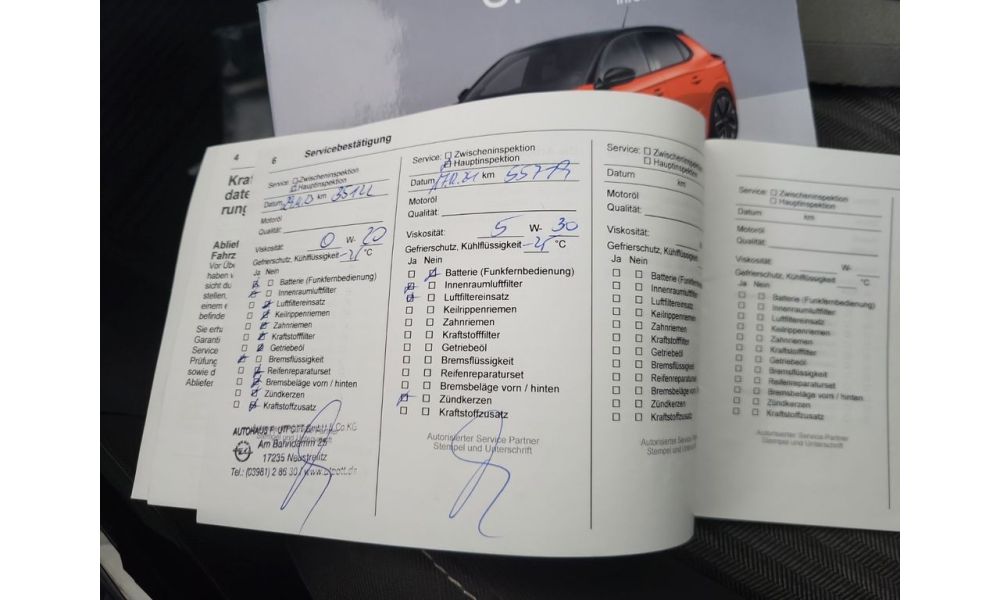 4
Kra
date
rung
Ablief
Fahrz
haben v
sicht du
stellen,
einem e
befinde
Sie erha
Garanti
Service
Prüfung
sowie d
Abliefer
6 Servicebestätigung
Service: Zwischeninspektion
Hauptinspektion
Datum km
Motoröl
Qualität:
Viskosität: 0 W- 20
Gefrierschutz, Kühlflüssigkeit °C
Ja Nein
Batterie (Funkfernbedienung)
Innenraumluftfilter
Luftfiltereinsatz
Keilrippenriemen
Zahnriemen
Kraftstofffilter
Getriebeöl
Bremsflüssigkeit
Reifenreparaturset
Bremsbeläge vorn / hinten
Zündkerzen
Kraftstoffzusatz
Stempel und Unterschrift
AUTOHAUS Co.KG
Am Bahndamm 25
17235 Neustrelitz
Tel.: (03981) 2
Service: Zwischeninspektion
Hauptinspektion
Datum km
Motoröl
Qualität:
Viskosität: 5 W- 30
Gefrierschutz, Kühlflüssigkeit °C
Ja Nein
Batterie (Funkfernbedienung)
Innenraumluftfilter
Luftfiltereinsatz
Keilrippenriemen
Zahnriemen
Kraftstofffilter
Getriebeöl
Bremsflüssigkeit
Reifenreparaturset
Bremsbeläge vorn / hinten
Zündkerzen
Kraftstoffzusatz
Autorisierter Service Partner
Stempel und Unterschrift
Service: Zwischeninspektion
Hauptinspektion
Datum km
Motoröl
Qualität:
Viskosität:
Gefrierschutz, Kühlflüssigkeit
Ja Nein
Batterie (Funkfernbedienung
Innenraumluftfilter
Luftfiltereinsatz
Keilrippenriemen
Zahnriemen
Kraftstofffilter
Getriebeöl
Bremsflüssigkeit
Reifenreparaturset
Bremsbeläge vorn
Zündkerzen
Kraftstoffzusatz
Autorisierter Service Partn
Stempel und Unterschrif
Service: Zwischeninspektion
Hauptinspektion
Datum km
Motoröl
Qualität:
Viskosität: W-
Gefrierschutz, Kühlflüssigkeit °C
Ja Nein
Batterie (Funkfernbedienung)
Innenraumluftfilter
Luftfiltereinsatz
Keilrippenriemen
Zahnriemen
Kraftstofffilter
Getriebeöl
Bremsflüssigkeit
Reifenreparaturset
Bremsbeläge vorn / hinten
Zündkerzen
Kraftstoffzusatz
Autorisierter Service Partner
Stempel und Unterschrift